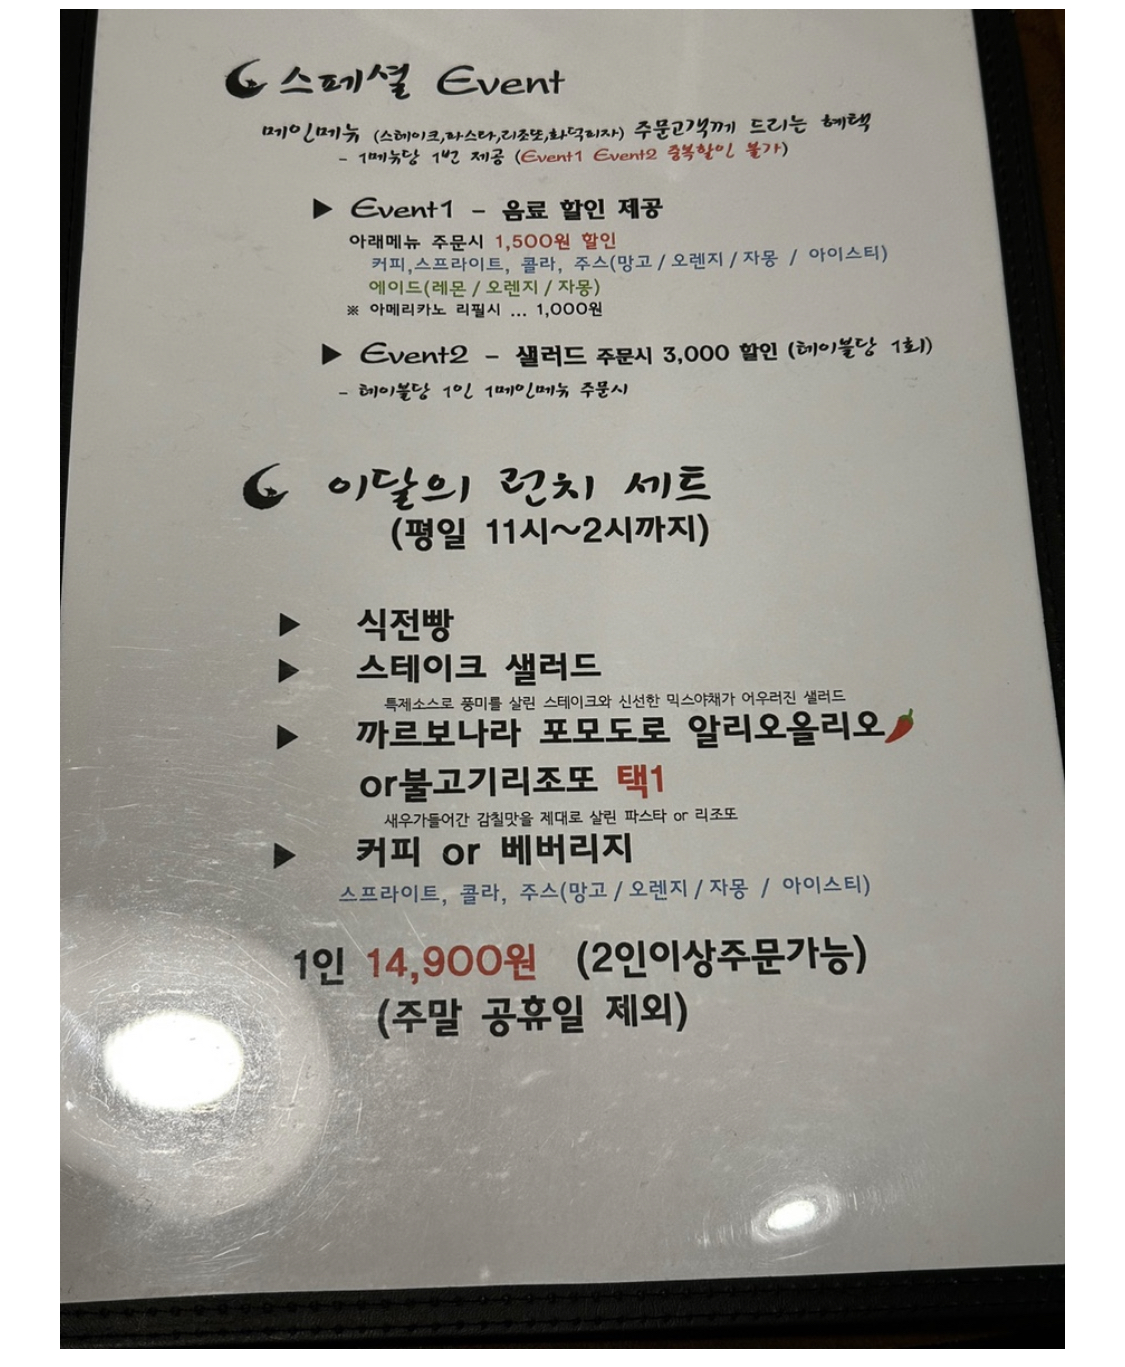 스페셜 Event
메인메뉴 (스테이크,파스타,리조또,화덕피자) 주문고객께 드리는 혜택
- 1메뉴당 1번 제공 (Event1 Event2 중복할인 불가)
▶ Event1 - 음료 할인 제공
아래메뉴 주문시 1,500원 할인
커피,스프라이트, 콜라, 주스(망고 / 오렌지 / 자몽 / 아이스티)
에이드(레몬 / 오렌지 / 자몽)
※ 아메리카노 리필시 ... 1,000원
▶ Event2 - 샐러드 주문시 3,000 할인 (테이블당 1회)
- 테이블당 1인 1메인메뉴 주문시
이달의 런치 세트
(평일 11시~2시까지)
▶ 식전빵
▶ 스테이크 샐러드
특제소스로 풍미를 살린 스테이크와 신선한 믹스야채가 어우러진 샐러드
▶ 까르보나라 포모도로 알리오올리오🌶
or불고기리조또 택1
새우가들어간 감칠맛을 제대로 살린 파스타 or 리조또
▶ 커피 or 베버리지
스프라이트, 콜라, 주스(망고 / 오렌지 / 자몽 / 아이스티)
1인 14,900원 (2인이상주문가능)
(주말 공휴일 제외)